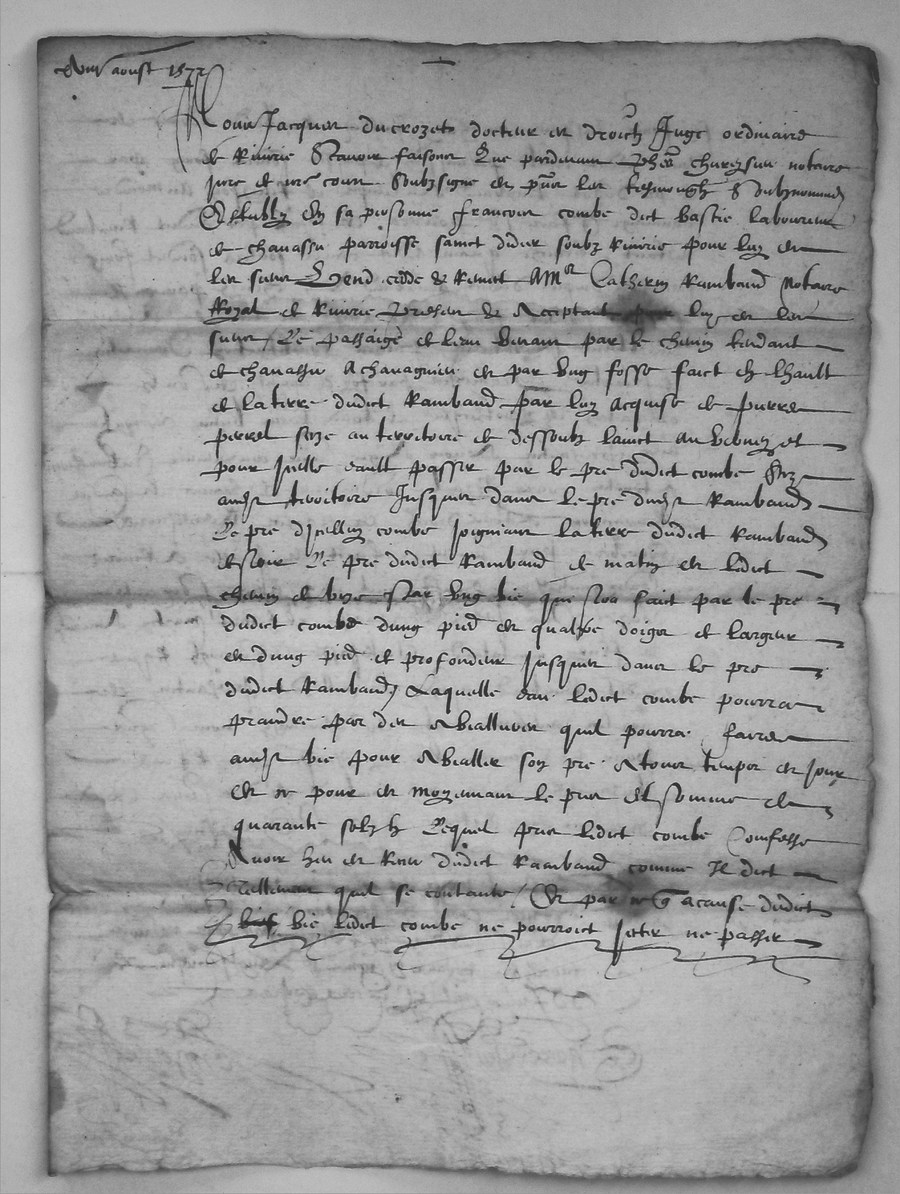 aoust 1577
Nous Jacques ducrozet docteur en droictz Juge ordinaire
de Riverie Scavoir faisons Que pardevant notaire
jure de nre court soubzsigne en
Estably en sa personne francois combe dict bastie laboureur
de chavassu parroisse sainct didier soubz Riverie pour luy et
les siens Vend cedde & Remet A Mre Catherin Rambaud Notaire
Royal de Riverie present & Acceptant pour luy et les
siens Le passaige de leau venant par le chemin tendant
de chavassu A chavagnieu et par ung fosse faict en lhault
de la terre dudict Rambaud par luy acquise de pierre
perret size au territoire de dessoubz et
pour Icelle eault passer par le pre dudict combe size
audit territoire Jusques dans le pre dudit Rambaud
Le pre dicelluy combe joignant la terre dudict Rambaud
de soir Le pre dudict Rambaud de matin et ledict
chemin de bize par ung bie que sera faict par le pre
dudict combe dung pied et quatre doigts de largeur
et dung pied de profondeur Jusques dans le pre
dudict Rambaud Laquelle eau ledict combe pourra
prandre par des quil pourra faire
audit bie pour son pre A tous temps et jour
et ce pour et moyenant le pris et somme de
quarante solz Lequel pris ledict combe Confesse
Avoir heu et Receu dudict Rambaud comme Il dict
tellement quil se contante Et par ce q a cause dudict
bie ledict combe ne pourroict jeter ne passer